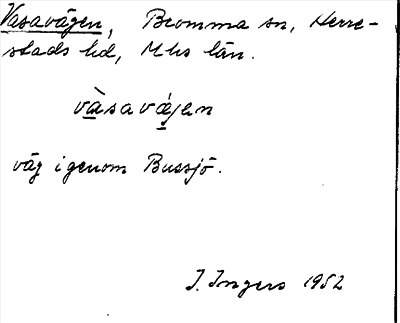 Vasavägen, Bromma sn, Herre-
stads hd, Mhs län.
vàsavä́jen
väg igenom Bussjö.
I. Ingers 1952